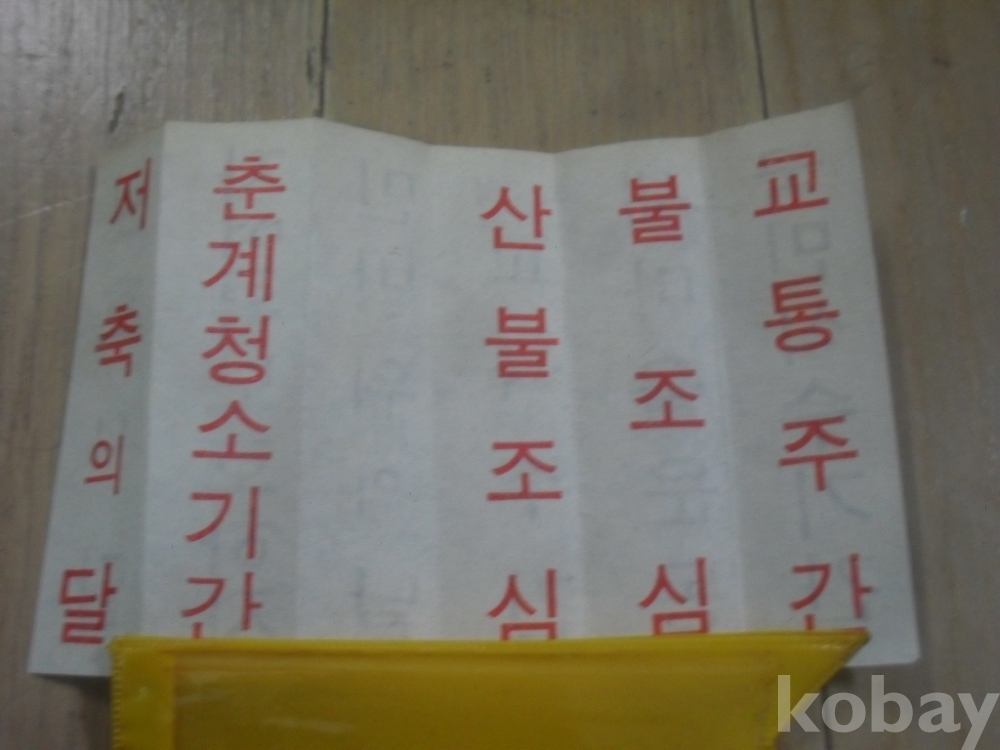 저축의달
춘계청소기간
산불조심
불조심
교통주간
kobay